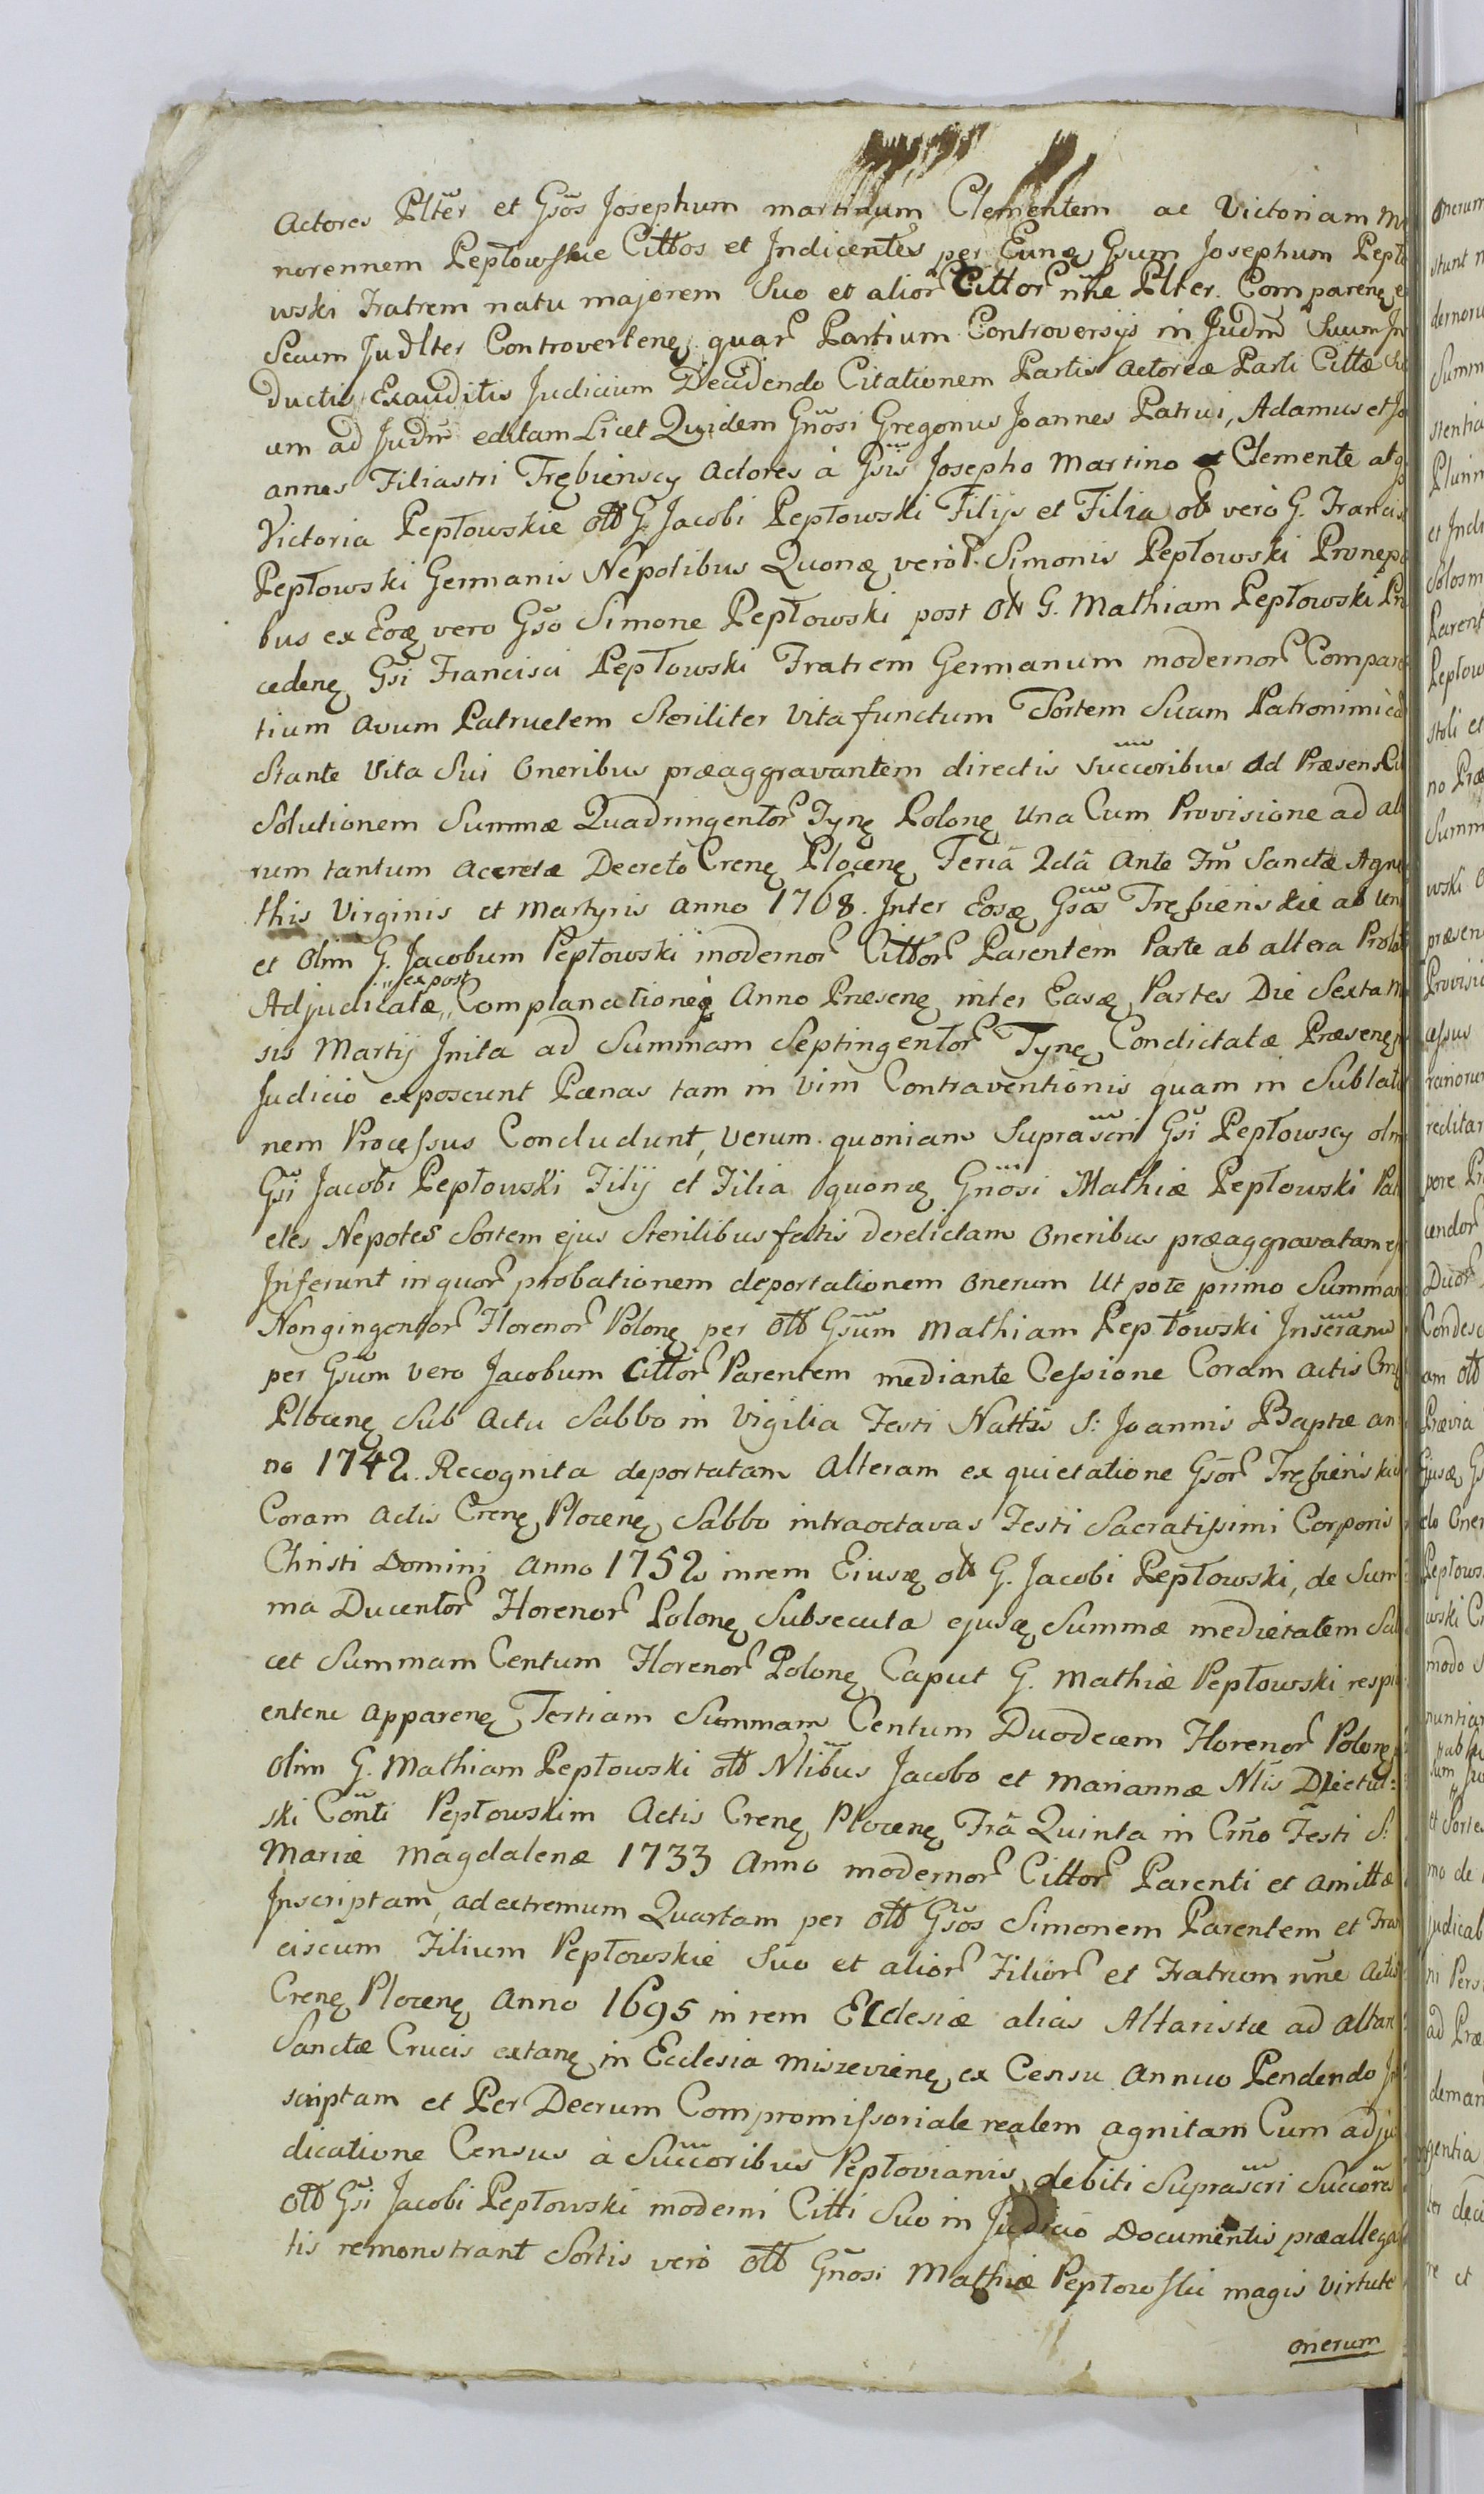 Actores Pltër et Gsõs Josephum martinum Clementem ac Victoriam mi
norennem Peptowskie Cittos et Indicentes per Eunq Gsum Josephum Pepło
wski Fratrem natu majorem Suo et alior Cittor nñe Plter. Comparenq e
Secum Judlter Controvertenq quar Partium Controversijs in Judm̃ Suum In
ductis Exauditis Judicium Decidendo Citationem Partis Actoreæ Parti Cittæ Su
um ad Judm̃ editam Licet Quidem Gnõsi Gregorius Joannes Patrui, Adamus et Jo
annes Filiastri Trębienscy Actores à Gsis Josepho Martino et Clemente atq
Victoria Pepłowskie ott G. Jacobi Pepłowski Filijs et Filia ott verò G. Francis
Pepłowski Germanis Nepotibus Quonq verò Simonis Pepłowski Pronepo
bus ex Eoq vero Gsõ Simone Pepłowski post ott G. Mathiam Pepłowski Pr
cedenq Gsi Francisci Pepłowski Fratrem Germanum modernor Comparen
tium Avum Patruelem Steriliter Vita functum Sortem Suam Patronimicã
Stante Vita Sui Oneribus præaggravantem directis Succoribus Ad Præsens
Solutionem Summæ Quadringentor Tynq Polonq Una Cum Provisione ad al
rum tantum Acceretæ Decretò Crenq Plocenq Feriâ 2dâ Ante Fm̃ Sanctæ Agne
this Virginis et Martyris Anno 1768. Inter Eosq Gsõs Trębienskie ab un
et Olim G. Jacobum Pepłowski modernor Cittor Parentem Parte ab altera Prolat
Adjudicatæ, "ex post" Complanationeq Anno Præsenq inter Easq Partes Die Sexta M
sis Martij Inita ad Summam Septingentor Tynq Condictatæ Præsenq
Judicio exposcunt Pænas tam in vim Contraventionis quam in Sublatio
nem Processus Concludunt, verum quoniam Suprascri Gsi Pepłowscy olim
Gsi Jacobi Pepłowski Filij et Filia quonq Gnosi Mathiæ Pepłowski Patru
eles Nepotes Sortem ejus Sterilibus fatis derelictam Oneribus præaggravatam
Inferunt in quor probationem deportationem Onerum Ut pote primo Summam
Nongingentor Florenor Polonq per ott Gsum Mathiam Pepłowski Inseram
per Gsum vero Jacobum Cittor Parentem mediante Cessione Coram Actis
Plocenq Sub Actu Sabbo in Vigilia Festi Nattis S: Joannis Baptæ an
no 1742. Recognita deportatam Alteram ex quietatione Gsor Trębienskich
Coram Actis Crenq Plocenq Sabbo intraoctavas Festi Sacratissimi Corporis
Christi Domini Anno 1752 inrem Eiusq ott G. Jacobi Pepłowski, de Sum
ma Ducentor Florenor Polonq Subsecuta ejusq Summæ medietatem Sci
cet Summam Centum Florenor Polonq Caput G. Mathiæ Pepłowski respi
entem Apparenq Tertiam Summam Centum Duodecem Florenor Polonq
Olim G. Mathiam Pepłowski ott Nlibus Jacobo et Mariannæ Nlis
ski Conti Pepłowskim Actis Crenq Plocenq Frâ Quinta in Crno Festi S:
Mariæ Magdalenæ 1733 Anno modernor Cittor Parenti et Amittæ
Inscriptam, ad extremum Quartam per ott Gsõs Simonem Parentem et Fran
ciscum Filium Pepłowskie Suo et alior Filior et Fratrum nñe Actis
Crenq Plocenq Anno 1695 in rem Ecclesiæ alias Altaristæ ad Altare
Sanctæ Crucis extanq in Ecclesia Miszevienq ex Censu Annuo Pendendo In
scriptam et Per Decrum Compromissoriale realem Agnitam Cum adju
dicatione Census à Succoribus Pepłovianis debiti Suprascri Succores
ott Gsi Jacobi Pepłowski moderni Citti Suo in Judicio Documentis præallega
tis remonstrant Sortis verò ott Gnosi Mathiæ Pepłowski magis virtute
onerum